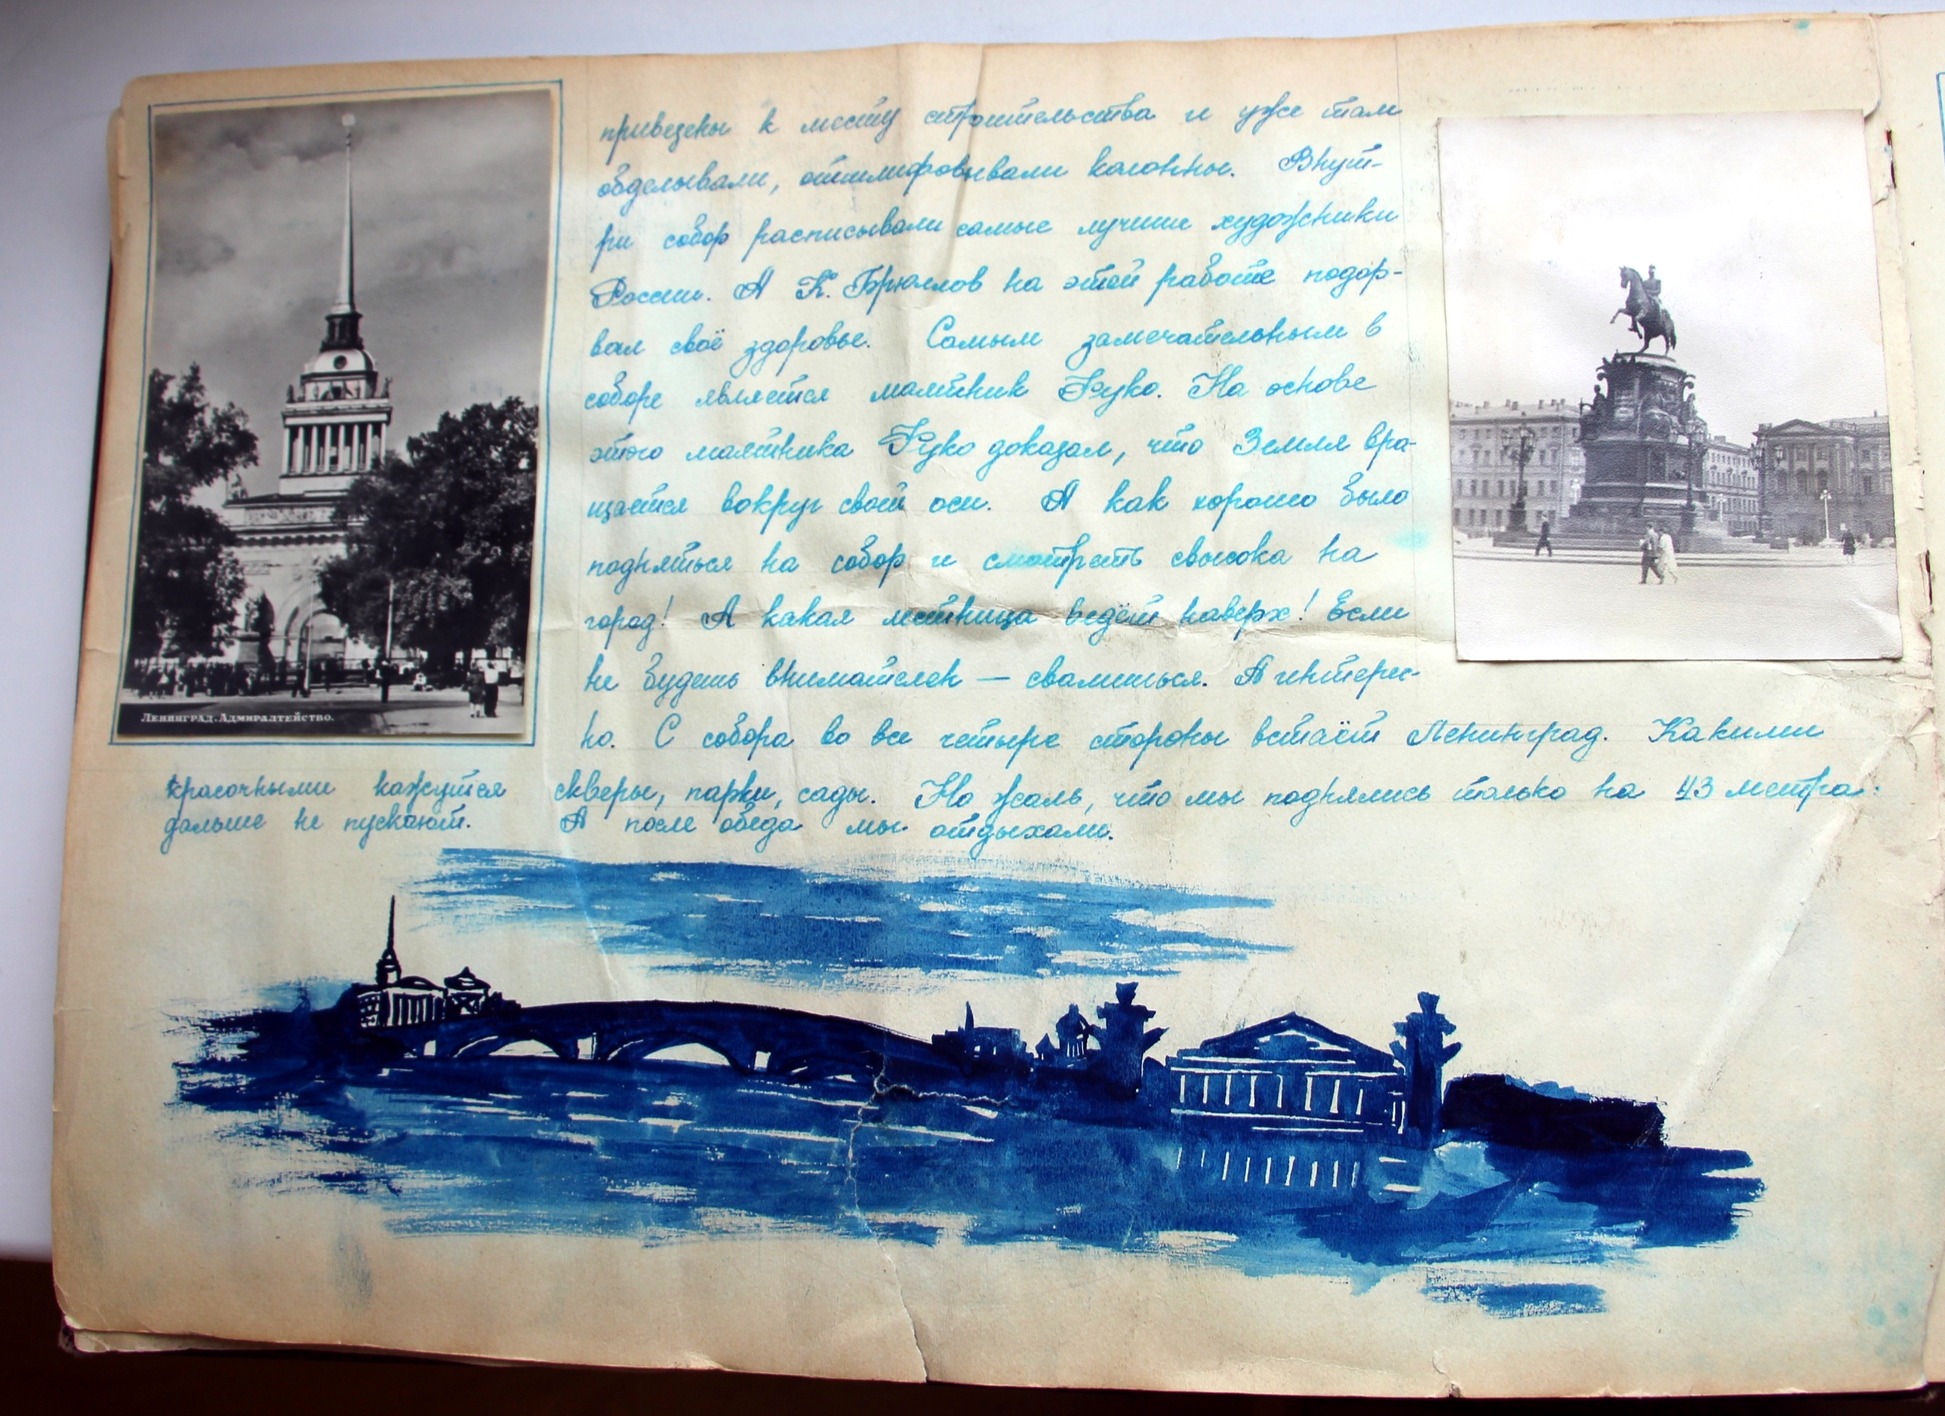 Ленинград. Адмиралтейство.
привезены к месту строительства и уже там
обделывали, отшлифовывали колонны. Внут-
ри собор расписывали самые лучшие художники
России. А К. Брюллов на этой работе подор-
вал своё здоровье. Самым замечательным в
соборе является маятник Фуко. На основе
этого маятника Фуко доказал, что Земля вра-
щается вокруг своей оси. А как хорошо было
подняться на собор и смотреть свысока на
город! А какая лестница ведёт наверх! Если
не будешь внимателен — свалишься. А интерес-
но. С собора во все четыре стороны встаёт Ленинград. Какими
красочными кажутся скверы, парки, сады. Но жаль, что мы поднялись только на 43 метра:
дальше не пускают. А после обеда мы отдыхали.